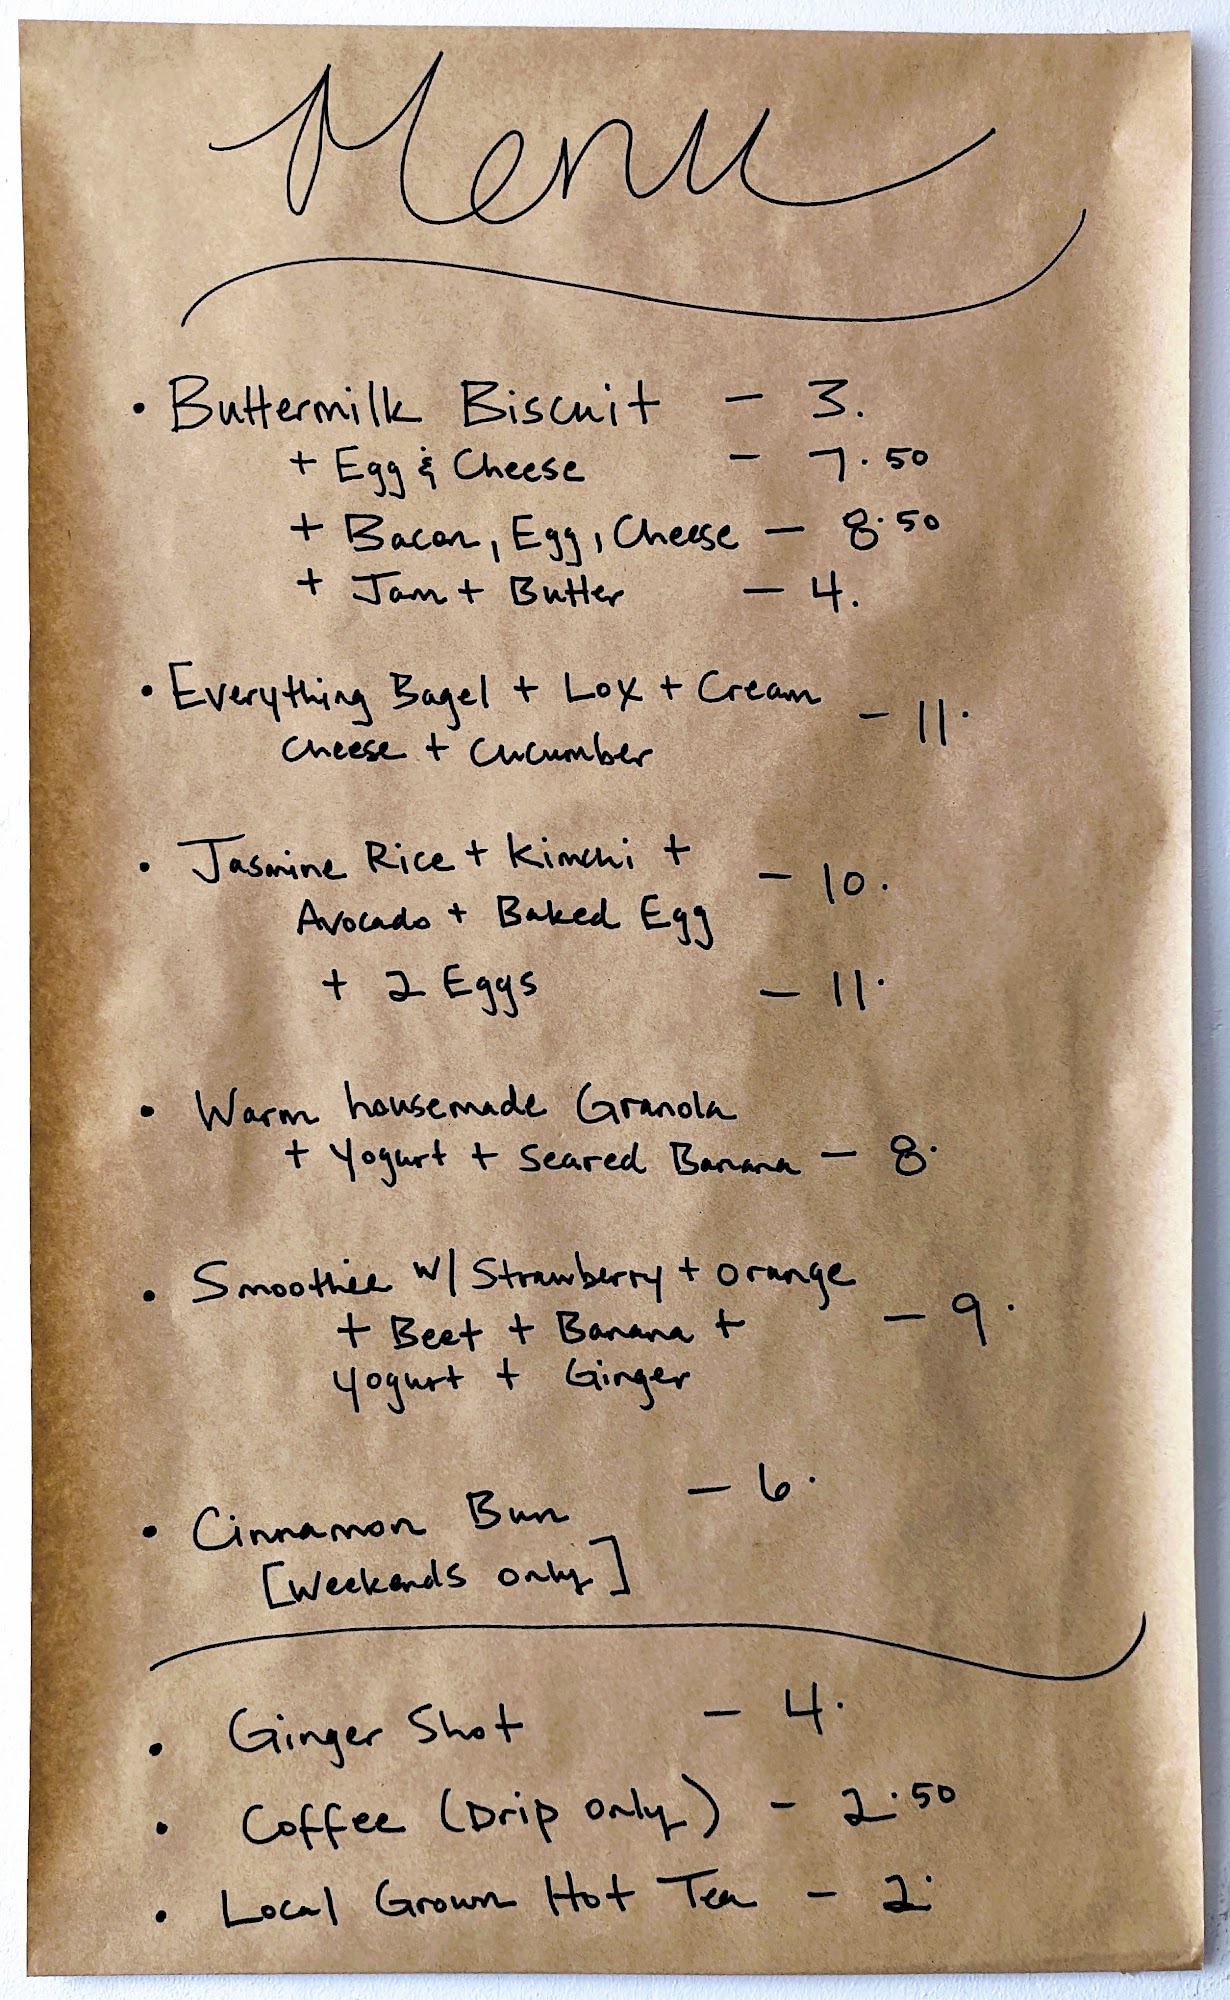 Menu
• Buttermilk Biscuit - 3.
+ Egg & Cheese - 7.50
+ Bacon, Egg, Cheese - 8.50
+ Jam + Butter - 4.
• Everything Bagel + Lox + Cream
Cheese + Cucumber - 11.
• Jasmine Rice + Kimchi +
Avocado + Baked Egg - 10.
+ 2 Eggs - 11.
• Warm housemade Granola
+ Yogurt + Seared Banana - 8.
• Smoothie w/ Strawberry + orange
+ Beet + Banana + - 9.
Yogurt + Ginger
• Cinnamon Bun - 6.
[Weekends only]
• Ginger Shot - 4.
• Coffee (Drip only) - 2.50
• Local Grown Hot Tea - 2.